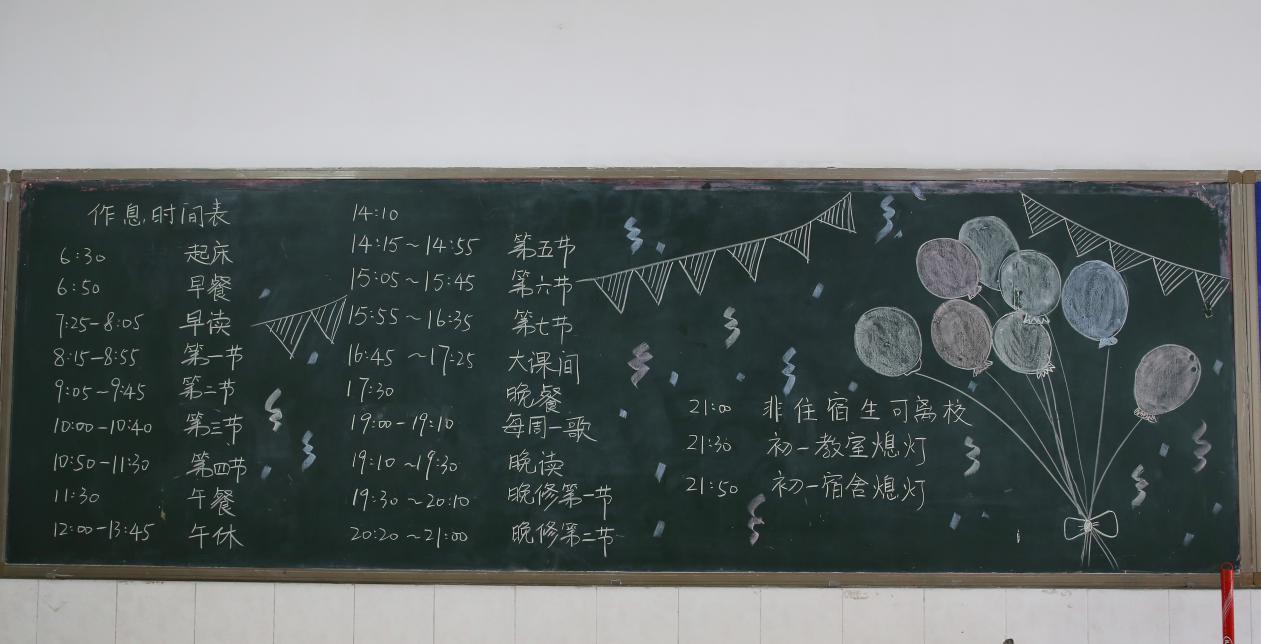 作息时间表
6:30 起床
6:50 早餐
7:25-8:05 早读
8:15-8:55 第一节
9:05-9:45 第二节
10:00-10:40 第三节
10:50-11:30 第四节
11:30 午餐
12:00-13:45 午休
14:10
14:15~14:55 第五节
15:05~15:45 第六节
15:55~16:35 第七节
16:45~17:25 大课间
17:30 晚餐
19:00-19:10 每周一歌
19:10~19:30 晚读
19:30~20:10 晚修第一节
20:20~21:00 晚修第二节
21:00 非住宿生可离校
21:30 初一教室熄灯
21:50 初一宿舍熄灯